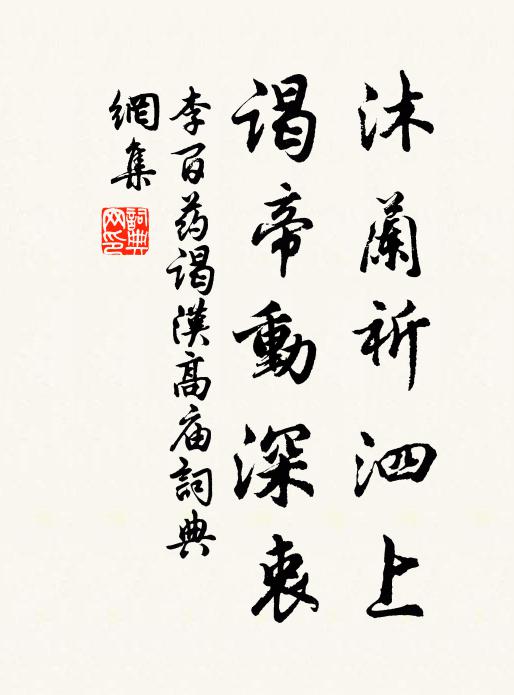 沐蘭祈泗上
谒帝動深衷
李百药谒漢高庙詞典
網集
詞典網印